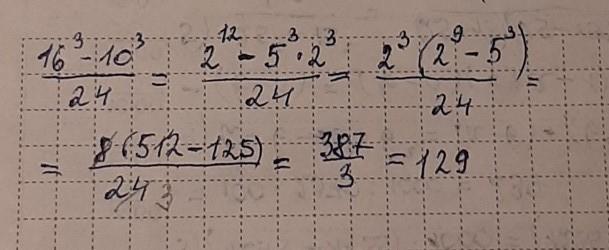 (16³ - 10³)/24 = (2¹² - 5³ · 2³)/24 = 2³(2⁹ - 5³)/24 =
= 8(512 - 125)/24 3 = 387/3 = 129